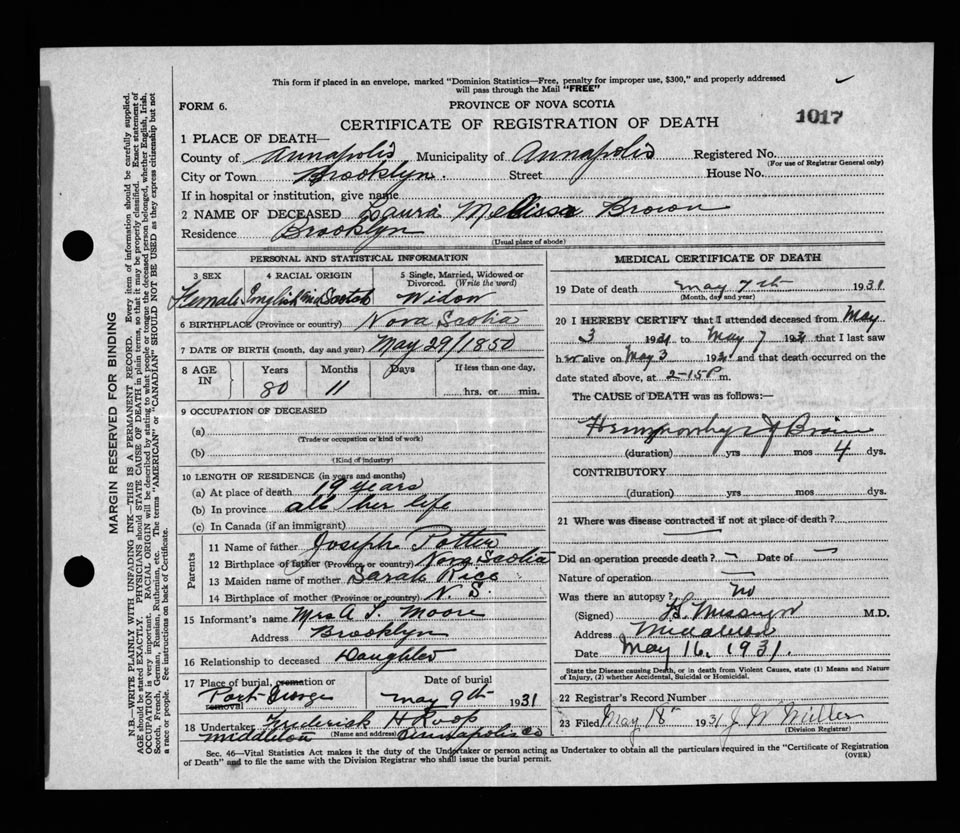 This form if placed in an envelope, marked "Dominion Statistics—Free, penalty for improper use, $300," and properly addressed
will pass through the Mail "FREE"
FORM 6.
PROVINCE OF NOVA SCOTIA
1017
CERTIFICATE OF REGISTRATION OF DEATH
1 PLACE OF DEATH—
County of Annapolis Municipality of Annapolis Registered No.
(For use of Registrar General only)
City or Town Brooklyn. Street House No.
If in hospital or institution, give name
2 NAME OF DECEASED Laura Melissa Brown
Residence Brooklyn
(Usual place of abode)
PERSONAL AND STATISTICAL INFORMATION
3 SEX
Female
4 RACIAL ORIGIN
English and Scotch
5 Single, Married, Widowed or
Divorced. (Write the word)
Widow
6 BIRTHPLACE (Province or country) Nova Scotia
7 DATE OF BIRTH (month, day and year) May 29/1850
8 AGE
IN
Years
80
Months
11
Days
If less than one day,
hrs. or min.
9 OCCUPATION OF DECEASED
(a)
(Trade or occupation or kind of work)
(b)
(Kind of industry)
10 LENGTH OF RESIDENCE (in years and months)
(a) At place of death 19 years
(b) In province all her life
(c) In Canada (if an immigrant)
Parents
11 Name of father Joseph Potter
12 Birthplace of father (Province or country) Nova Scotia
13 Maiden name of mother Sarah Rice
14 Birthplace of mother (Province or country) N. S.
15 Informant's name Mrs A Moore
Address Brooklyn
16 Relationship to deceased Daughter
17 Place of burial, cremation or
removal
Port George
Date of burial
May 9th 1931
18 Undertaker Frederick H Roop
(Name and address)
Middleton Annapolis Co
MEDICAL CERTIFICATE OF DEATH
19 Date of death May 7th 1931
(Month, day and year)
20 I HEREBY CERTIFY that I attended deceased from May
3 1931 to May 7 1931 that I last saw
her alive on May 3 1931 and that death occurred on
date stated above, at 2-15 P m.
The CAUSE of DEATH was as follows:—
Brain
(duration) yrs mos 4 dys.
CONTRIBUTORY
(duration) yrs mos dys.
21 Where was disease contracted if not at place of death?
Did an operation precede death? — Date of —
Nature of operation —
Was there an autopsy? no
(Signed) M.D.
Address Middleton
Date May 16, 1931.
State the Disease causing Death, or in death from Violent Causes, state (1) Means and Nature
of Injury, (2) whether Accidental, Suicidal or Homicidal.
22 Registrar's Record Number
23 Filed May 18th 1931 J. W. Miller
(Division Registrar)
Sec. 46—Vital Statistics Act makes it the duty of the Undertaker or person acting as Undertaker to obtain all the particulars required in the "Certificate of Registration
of Death" and to file the same with the Division Registrar who shall issue the burial permit.
(OVER)
MARGIN RESERVED FOR BINDING
N.B.—WRITE PLAINLY WITH UNFADING INK—THIS IS A PERMANENT RECORD. Every item of information should be carefully supplied.
AGE should be stated EXACTLY. PHYSICIANS should STATE CAUSE OF DEATH in plain terms, so that it may be properly classified. Exact statement of
OCCUPATION is very important. RACIAL ORIGIN will be described by stating to what people or tongue the deceased person belonged, whether English, Irish,
Scotch, French, German, Russian, Ruthenian, etc. The terms "AMERICAN" or "CANADIAN" SHOULD NOT BE USED as they express citizenship but not
a race or people. See instructions on back of Certificate.